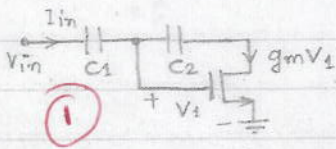 Iin
Vin
C1
C2
gmV1
+ V1 -
1